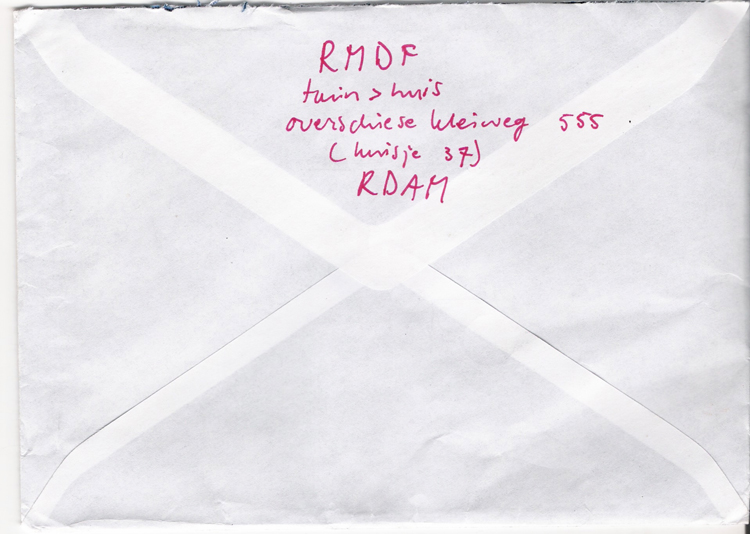 RMDF
tuin > huis
overschiese kleiweg 555
(huisje 37)
RDAM